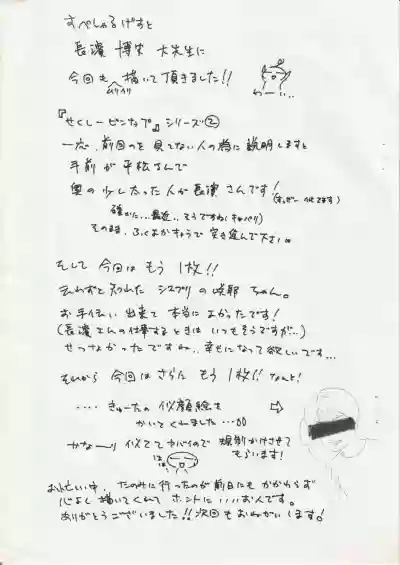 すぺしゃるげすと
長濱 博史 大先生に
今回も ムリムリ 描いて頂きました!!
わーい…
『せくしーピンナップ』シリーズ②
一応、前回のを見てない人の為に説明しますと
手前が平松なんで
奥の少し太った人が長濱さんです!
確かに…最近…そうですね(キッパリ)
そのまま、ふくよかきょうで突き進んで下さい
そして 今回は もう 1枚!!
云わずと知れた シスプリの咲耶 ちゃん。
お手伝い出来て 本当に よかったです!
(長濱さんの仕事するときは いつもそうですが…)
せつなかったですね…幸せになって欲しいです…
それから 今回は さらに もう 1枚!! なんと!
‥‥ きゅーたの 似顔絵を ⇨
かいてくれました…
かな〜り 似ててヤバイので 規制かけさせて
もらいます!
お忙しい中、たのみに行ったのが前日にもかかわらず
心よく描いてくれて ホントに いいお人です。
ありがとうございました!!次回もおねがいします!